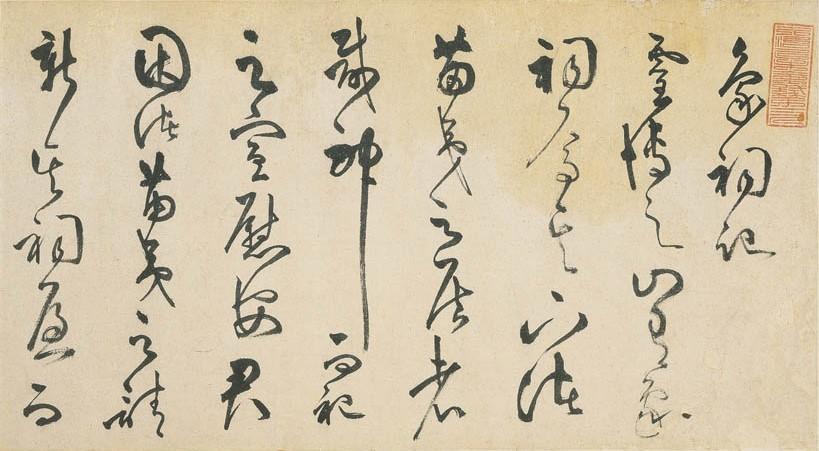 象祠記
靈博之山有象
祠焉其下諸
苗夷之居者
咸神而祀
之宣慰安君
因諸苗夷之請
新其祠屋而